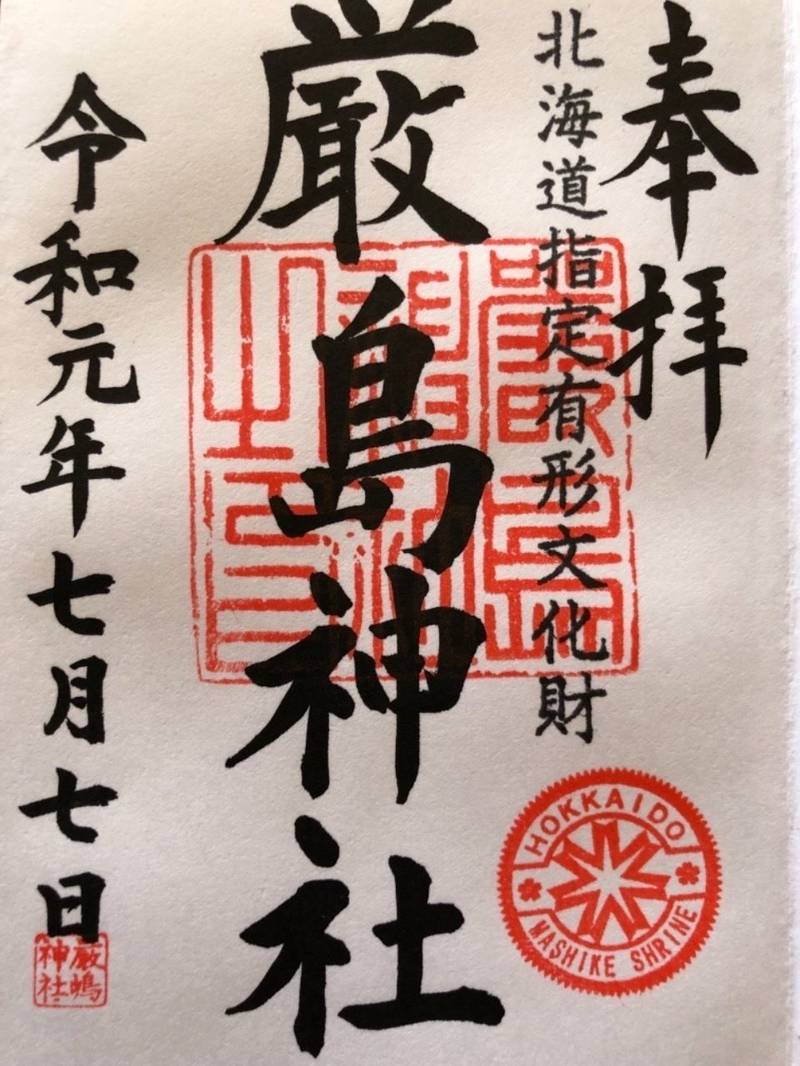 奉拝
北海道指定有形文化財
厳島神社
令和元年七月七日
HOKKAIDO
MASHIKE SHRINE
厳嶋
神社